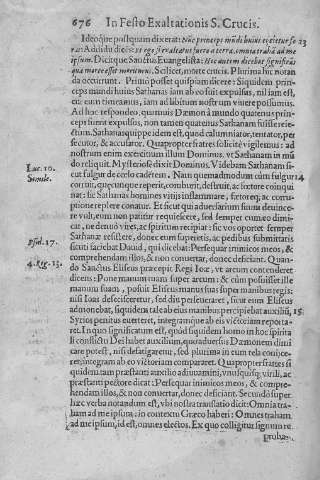 676 In Festo Exaltationis S. Crucis.
Ideoque postquam dixerat: Nunc princeps mundi huius eijcietur fo 23
ras: Addidit dicēs: Et ego si exaltatus fuero a terra, omnia trahā ad me
ipsum. Dicitque Sanctus Euangelista: Hoc autem dicebat significās
qua morte esset moriturus. Scilicet, morte crucis. Plurima huc notan
da occurrunt. Primò potest quispiam dicere: Siquidem princeps
mundi huius Sathanas iam ab eo fuit expulsus, nil iam est,
quod eum timeamus, iam ad libitum nostrum viuere possumus.
Ad hoc respondeo, quamuis Dæmon à mundo quatenus princeps
fuerit expulsus, non tamen quatenus Sathanam fuisse reie-
ctum. Sathanas quippe idem est, quod calumniator, tentator, per
secutor, & accusator. Quapropter fratres solicitè vigilemus: ad
nostrum enim exercitium illum Dominus, vt Sathanam in mū
do reliquit. Mysteriosè dixit Dominus. Videbam Sathanam si-
Luc. 10. cut fulgur de cœlo cadētem. Nam quemadmodum cùm fulgur 14
Simile. corruit, quęcunque reperit, comburit, destruit, ac fœtore coinqui
nat: sic Sathanas homines vitijs inflammare, fœtoreq; ac corru-
ptione replere conatur. Et sicut qui aduersarium suum deuince-
re vult, eum non patitur requiescere, sed semper cum eo dimi-
cat, ne denuò vires, ac spiritum recipiat: sic vos oportet semper
Psal. 17. Sathanæ resistere, donec eum superetis, ac pedibus submittatis
sicuti faciebat Dauid, qui dicebat: Persequar inimicos meos, &
comprehendam illos, & non conuertar, donec deficiant. Quan-
4. Reg. 13. do Sanctus Eliseus præcepit Regi Ioæ, vt arcum contenderet
dicens: Pone manum tuam super arcum: & cùm posuisset ille
manum suam, posuit Eliseus manus suas super manibus regis:
nisi Ioas defecisceretur, sed diu perseueraret, sicut eum Eliseus
admonebat, siquidem tale ab eius manibus percipiebat auxiliū, 15
Syrios penitus euerteret, integramque ab eis victoriam reporta-
ret. In quo significatum est, quòd siquidem homo in hoc spiritua
li conflictu Dei habet auxilium, quo aduersus Dæmonem dimi
care potest, nisi defatigaretur, sed plurima in eum tela conijce-
ret, integram ab eo victoriam compararet. Quapropter fratres si
quidem tam præstanti auxilio adiuuamini, vnusquisq; virili, ac
præstanti pectore dicat: Persequar inimicos meos, & compre-
hendam illos, & non conuertar, donec deficiant. Secundò super
hæc verba notandum est, vbi nostra translatio dicit: Omnia tra-
ham ad me ipsum: in contextu Græco haberi: Omnes traham
ad me ipsum, id est, omnes electos. Ex quo colligitur signum re
proba-